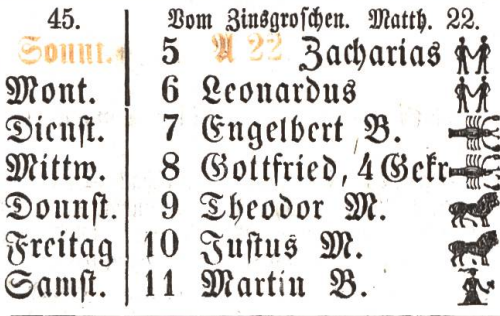 45. Vom Zinsgroschen. Matth. 22.
Sonnt. 5 A 22 Zacharias
Mont. 6 Leonardus
Dienst. 7 Engelbert B.
Mittw. 8 Gottfried, 4 Gekr
Donnst. 9 Theodor M.
Freitag 10 Justus M.
Samst. 11 Martin B.